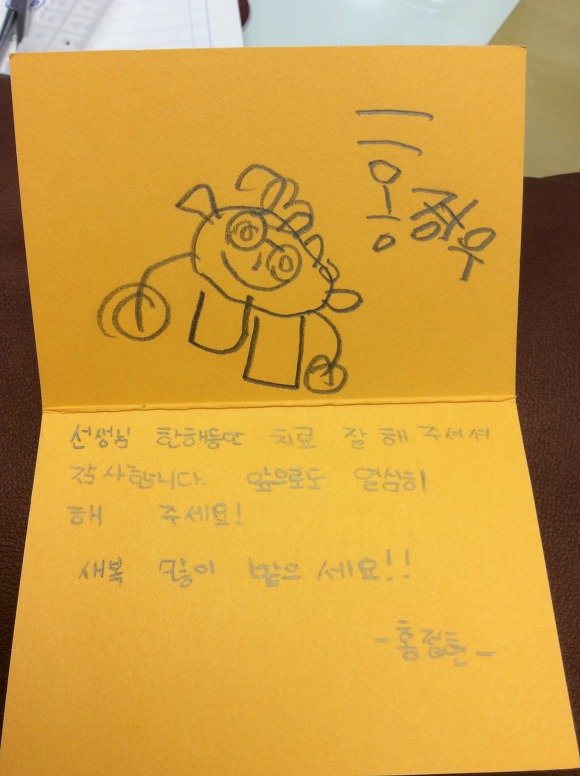 홍 우
선생님 한해동안 치료 잘 해 주셔셔
감사합니다. 앞으로도 열심히
해 주세요!
새복 많이 밭으 세요!!
- 홍정현 -